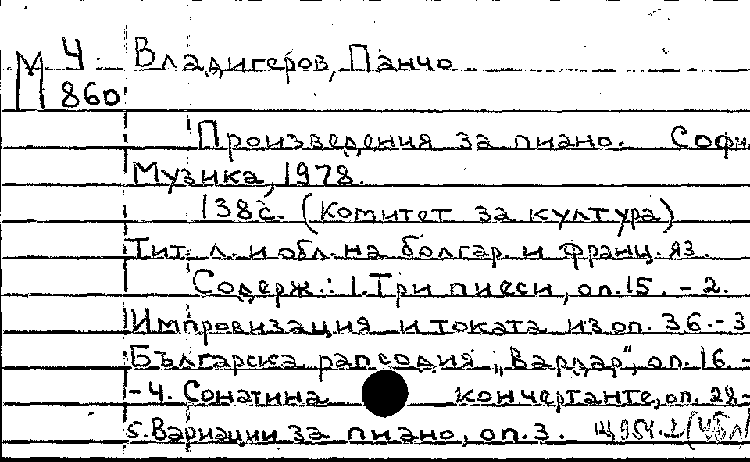 М 4 Владигеров, Панчо
860
Произведения за пиано. Софи
Музика, 1978.
138с. (Комитет за култура)
Тит. л. и обл. на болгар. и франц. яз.
Содерж.: 1. Три пиеси, оп.15. - 2.
Импровизация и токата из оп. 36. - 3
Българска рапсодия „Вардар“, оп. 16. -
- 4. Сонатина кончертанте, оп. 28. -
5. Вариации за пиано, оп. 3.